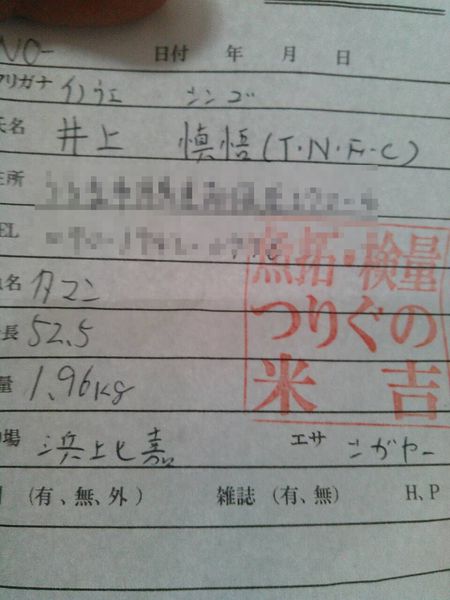 NO-
日付 年 月 日
フリガナ イノウエ シンゴ
氏名 井上 慎悟(T.N.F.C)
住所
TEL
魚名 タマン
全長 52.5
重量 1.96kg
釣場 浜比嘉 エサ シガヤー
(有、無、外) 雑誌 (有、無) H、P
魚拓・検量
つりぐの
米吉